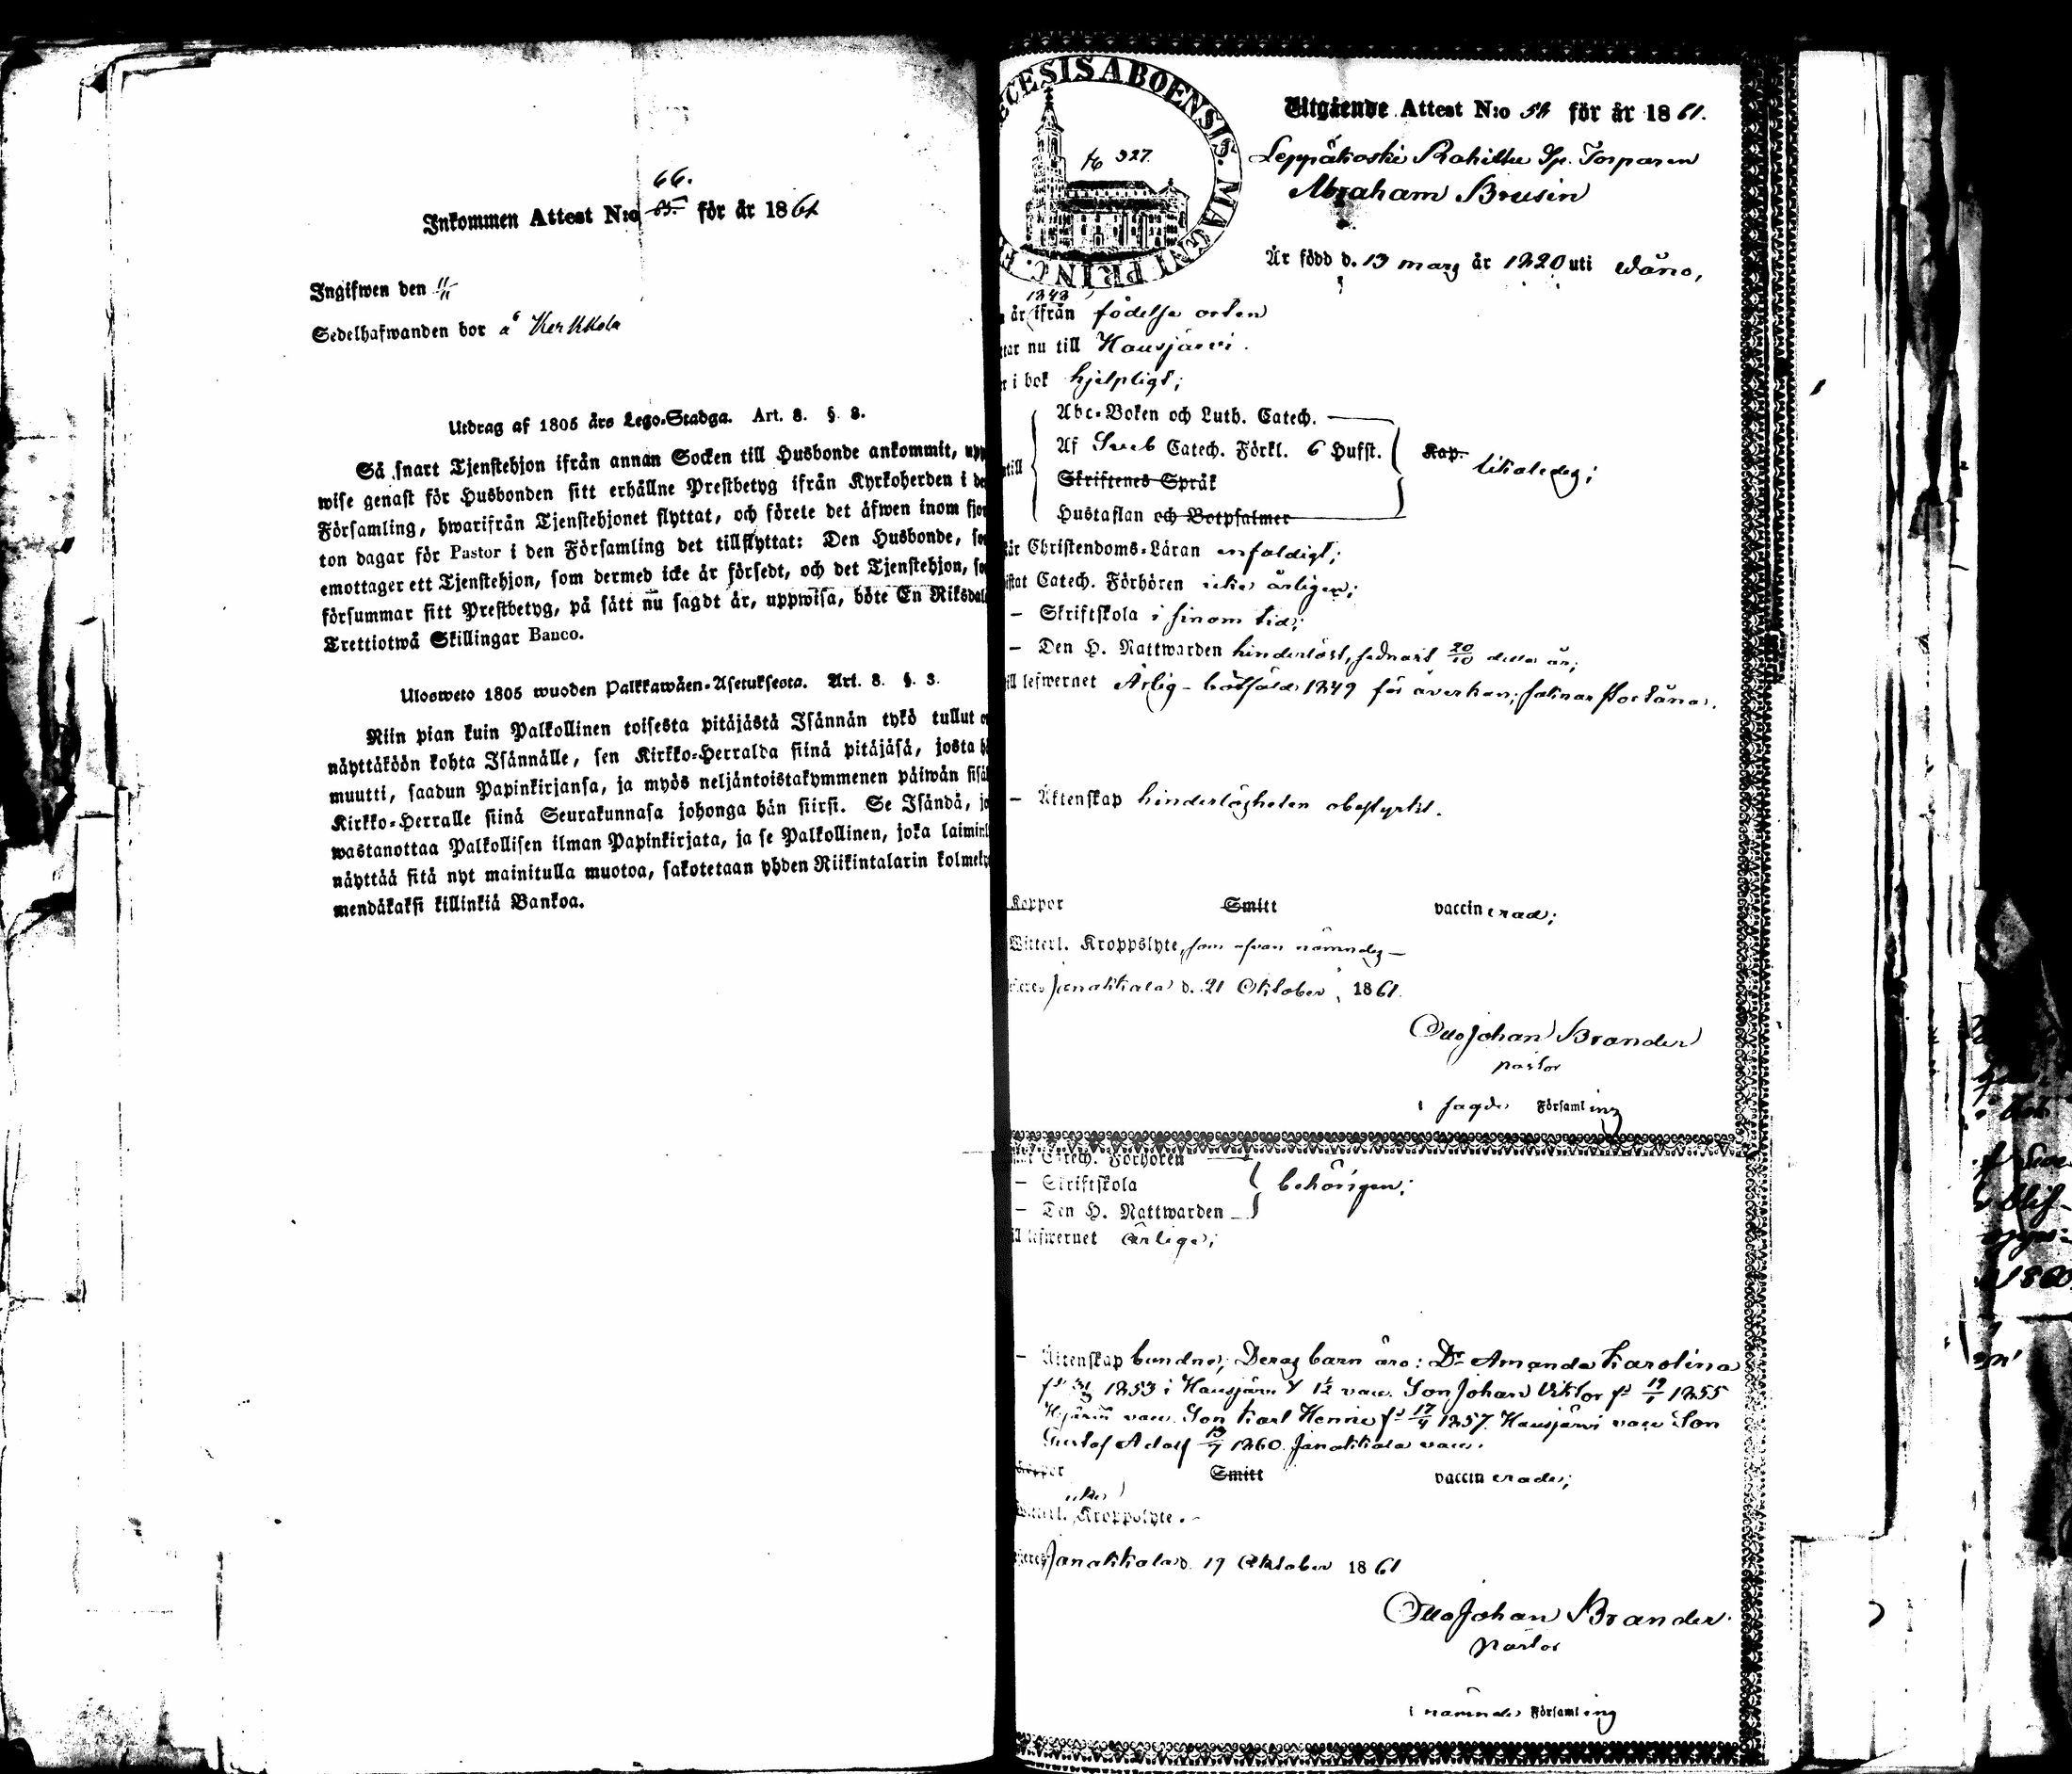 66.
Inkommen Attest N:o 65. för år 1861
Ingifwen den 11/11
Sedelhafwanden bor å Kerkkola
Utdrag af 1805 års Lego-Stadga. Art. 8. §. 8.
Så snart Tjenstehjon ifrån annan Socken till Husbonde ankommit, upp
wise genast för Husbonden sitt erhållne Prestbetyg ifrån Kyrkoherden i de
Församling, hwarifrån Tjenstehjonet flyttat, och förete det äfwen inom fjor
ton dagar för Pastor i den Församling det tillflyttat: Den Husbonde, so
emottager ett Tjenstehjon, som dermed icke är försedt, och det Tjenstehjon, so
försummar sitt Prestbetyg, på sätt nu sagdt är, uppwisa, böte En Riksdal
Trettiotwå Skillingar Banco.
Ulosweto 1805 wuoden Palkkawäen-Asetuksesta. Art. 8. §. 3.
Niin pian kuin Palkollinen toisesta pitäjästä Isännän tykö tullut o
näyttäköön kohta Isännälle, sen Kirkko-Herralda siinä pitäjäsä, josta hä
muutti, saadun Papinkirjansa, ja myös neljäntoistakymmenen päiwän sisä
Kirkko-Herralle siinä Seurakunnasa johonga hän siirsi. Se Isändä, jo
wastanottaa Palkollisen ilman Papinkirjata, ja se Palkollinen, joka laimin
näyttää sitä nyt mainitulla muotoa, sakotetaan yhden Riikintalarin kolmeky
mendäkaksi killinkiä Bankoa.
ECESIS ABOENSIS. MAGNI PRINC. F
327.
Utgående Attest N:o 52 för år 1861.
Leppäkoski Rahitku Sp. Torparen
Abraham Brusin
Är född d. 13 mars år 1820 uti Wåno,
1843
år ifrån födelse orten
tar nu till Hausjärvi.
r i bok hjelpligt;
Abc-Boken och Luth. Catech.
Af Sveb Catech. Förkl. 6 Hufst.
Kap. likaledes;
till
Skriftenes Språk
Hustaflan och Botpsalmer
tår Christendoms-Läran enfaldigt;
istat Catech. Förhören icke årligen;
– Skriftskola i sinom tid;
– Den H. Nattwarden hinderlöst, sednast 20/10 detta år;
ill lefwernet Ärlig – bötfäld 1849 för åverkan;
– Äktenskap hinderlösheten obestyrkt.
Koppor Smitt vaccinerad;
Witterl. Kroppslyte, som ofvan nämndes –
Janakkala d. 21 Oktober 1861.
Otto Johan Brander
pastor
i sagde Församling
Catech. Förhören
– Skriftskola
behörigen;
– Den H. Nattwarden
ill lefwernet ärliga;
– Äktenskap bundna; Deras barn äro: Dr Amanda Karolina
1853 i Hausjärvi vacc. Son Johan Viktor fd 19/1 1855
Hsjärvi vacc. Son Karl Henric fd 17/4 1857. Hausjärvi vacc Son
Gustaf Adolf 13/7 1860. Janakkala vacc.
Koppor Smitt vaccinerade;
icke
Witterl. Kroppslyte.
Janakkala d. 19 Oktober 1861
Otto Johan Brander
pastor
i nämnde Församling